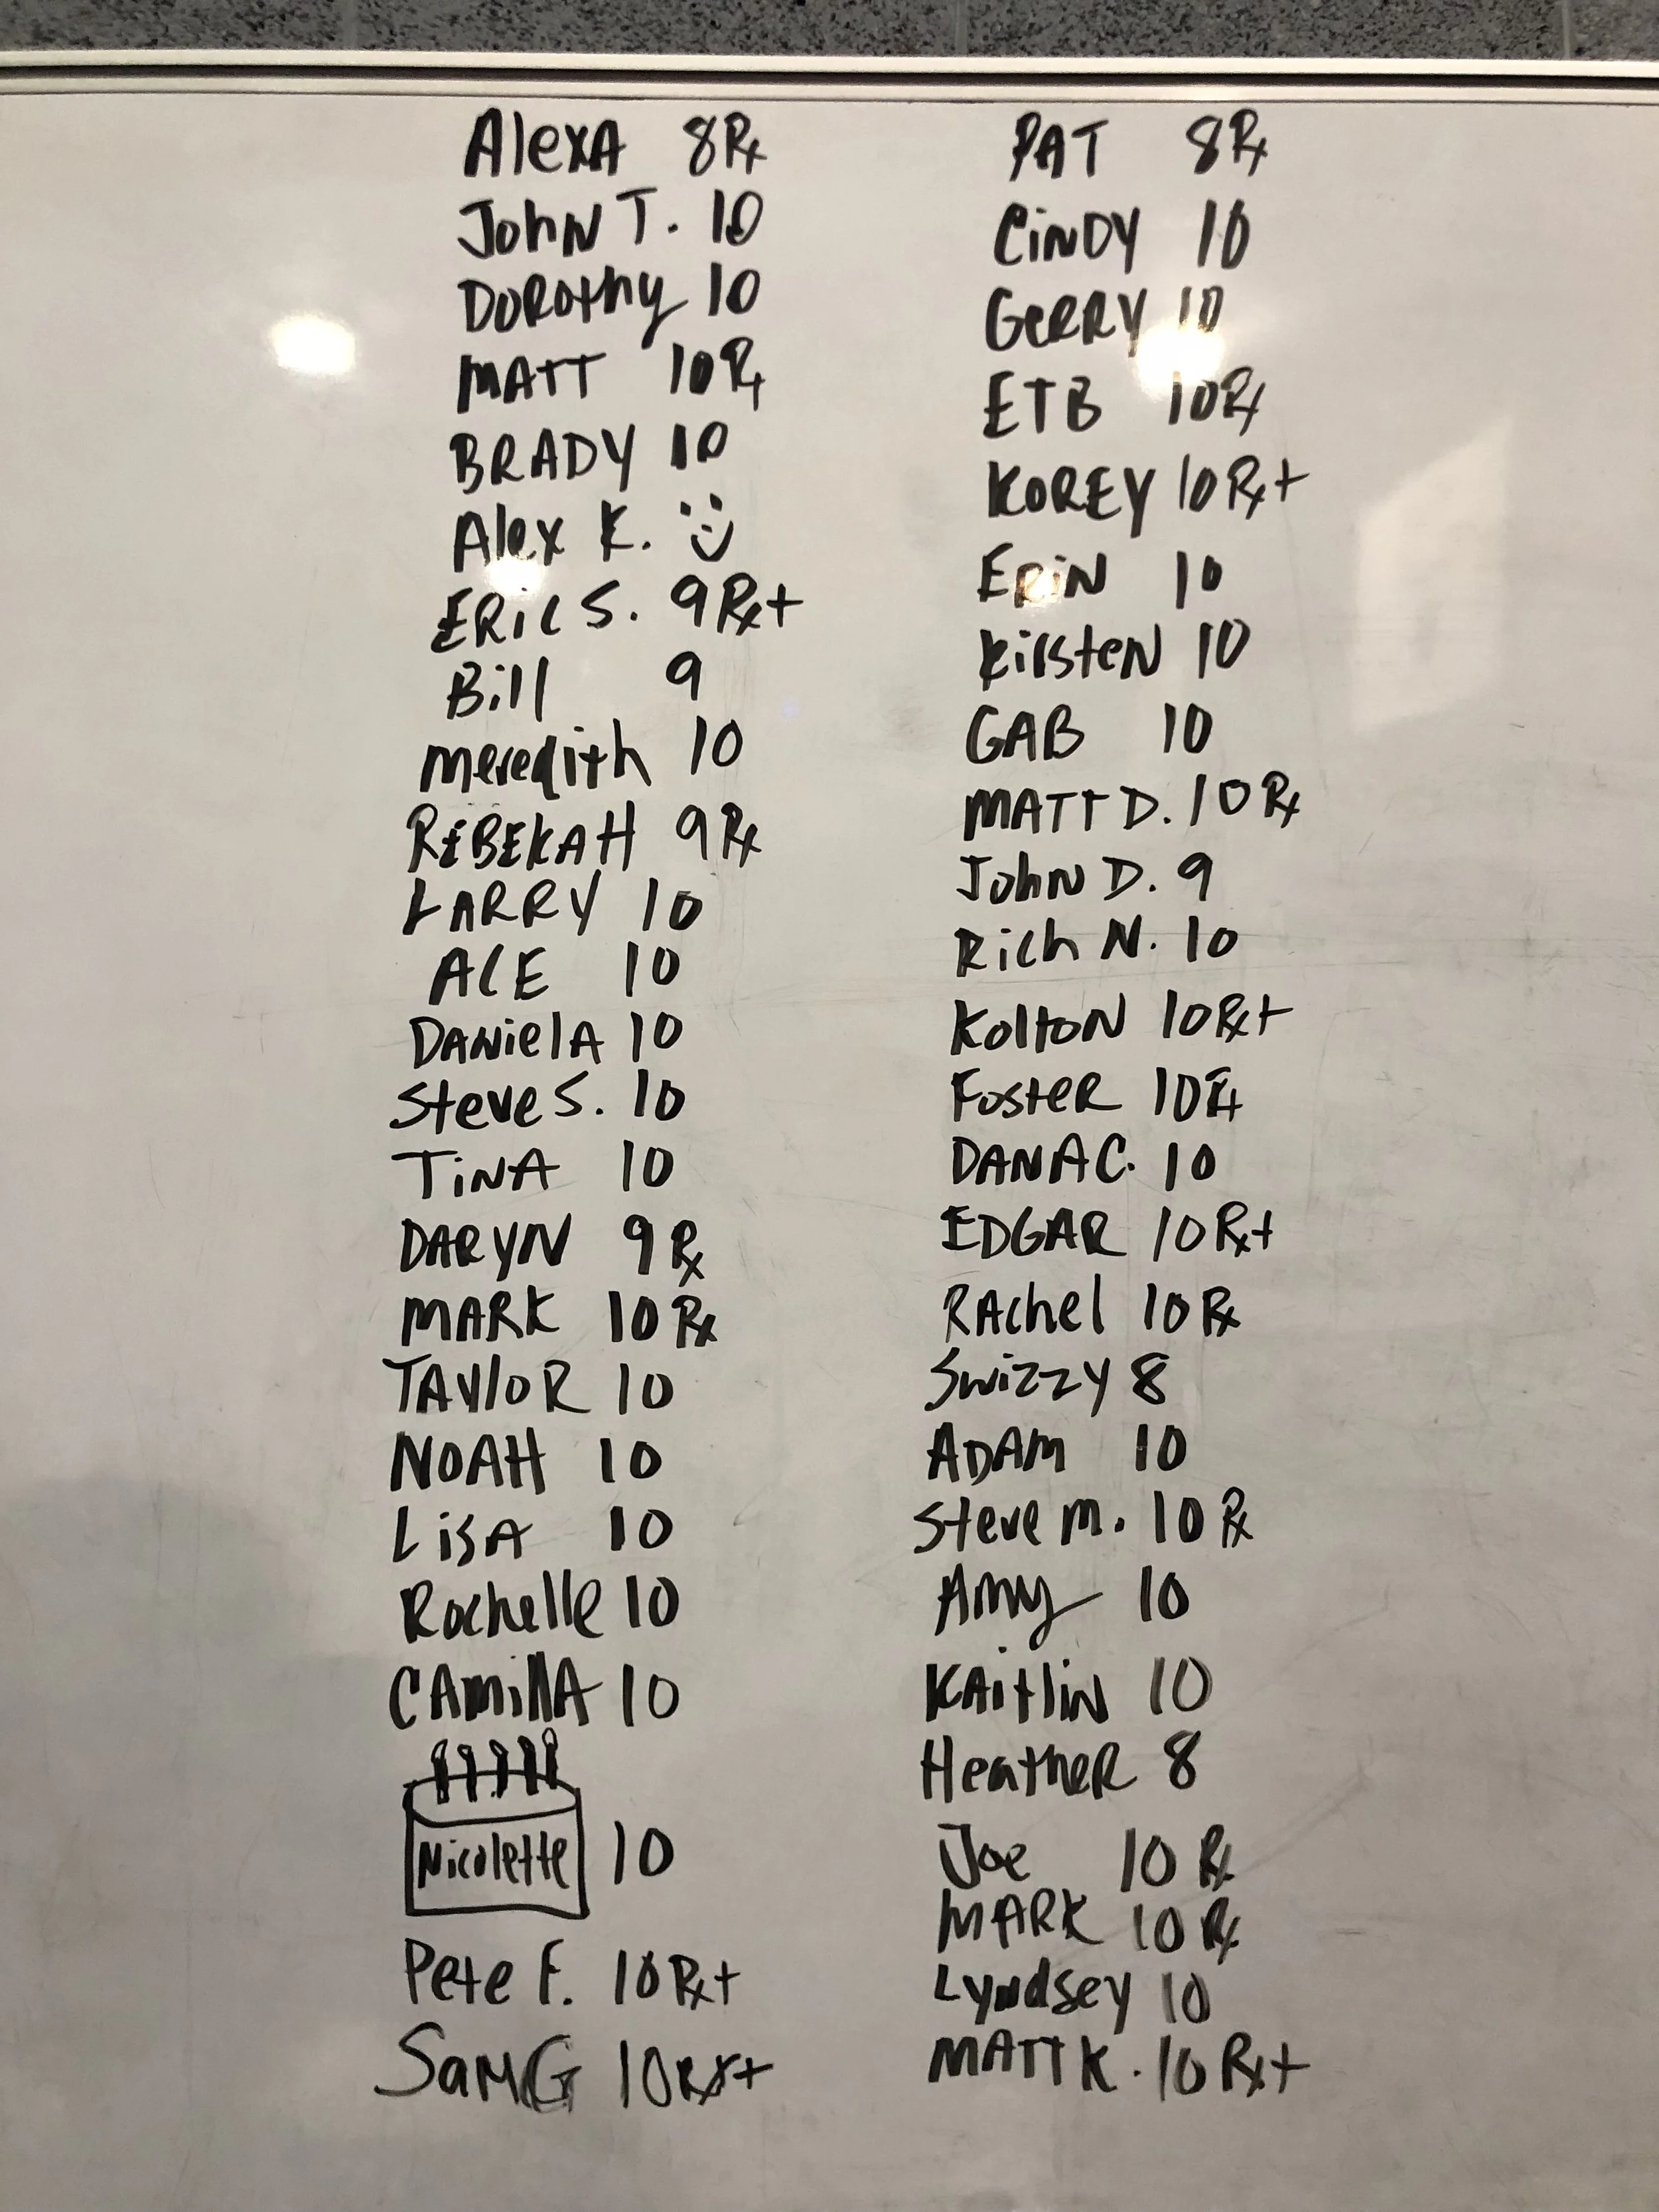 Alexa 8Rx
John T. 10
Dorothy 10
MATT 10Rx
BRADY 10
Alex K. :)
ERIC S. 9Rx+
Bill 9
Meredith 10
REBEKAH 9Rx
LARRY 10
ACE 10
Daniela 10
Steve S. 10
TiNA 10
DARYN 9Rx
MARK 10Rx
TAYloR 10
NOAH 10
LiSA 10
Rochelle 10
CAMillA 10
Nicolette 10
Pete F. 10Rx+
Sam G 10Rx+
PAT 8Rx
CiNDY 10
GeRRY 10
ETB 10Rx
KOREY 10Rx+
ERiN 10
KirsteN 10
GAB 10
MATT D. 10Rx
John D. 9
Rich N. 10
KoltoN 10Rx+
FosteR 10Rx
DANA C. 10
EDGAR 10Rx+
RAchel 10Rx
Swizzy 8
ADAM 10
Steve M. 10Rx
Amy 10
KAitliN 10
HeatheR 8
Joe 10Rx
MARK 10Rx
Lyndsey 10
MATT K. 10Rx+